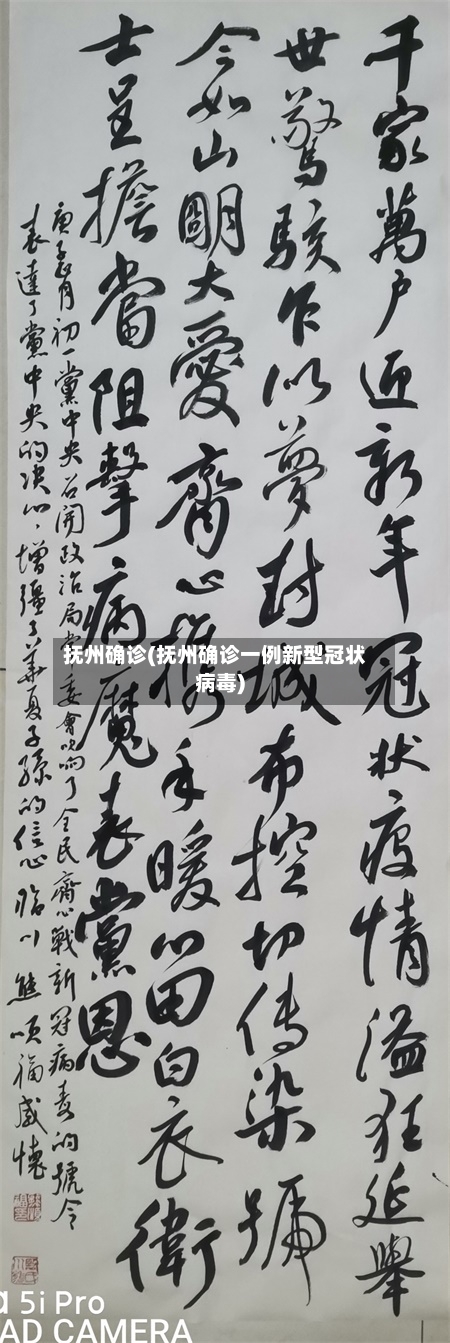 千家萬戶近新年冠狀疫情溢狂延舉
世驚駭乍似夢封城布控切傳染號
令如山關大愛齊心攜手暖心田白衣衛
士呈擔當阻擊病魔表黨恩
庚子正月初一黨中央召開政治局常委會吹响了全民齊心戰新冠病毒的號令
表達了黨中央的決心增强了華夏子孫的信心臨川熊順福感懷
抚州确诊(抚州确诊一例新型冠状
病毒)
5i Pro
AD CAMERA